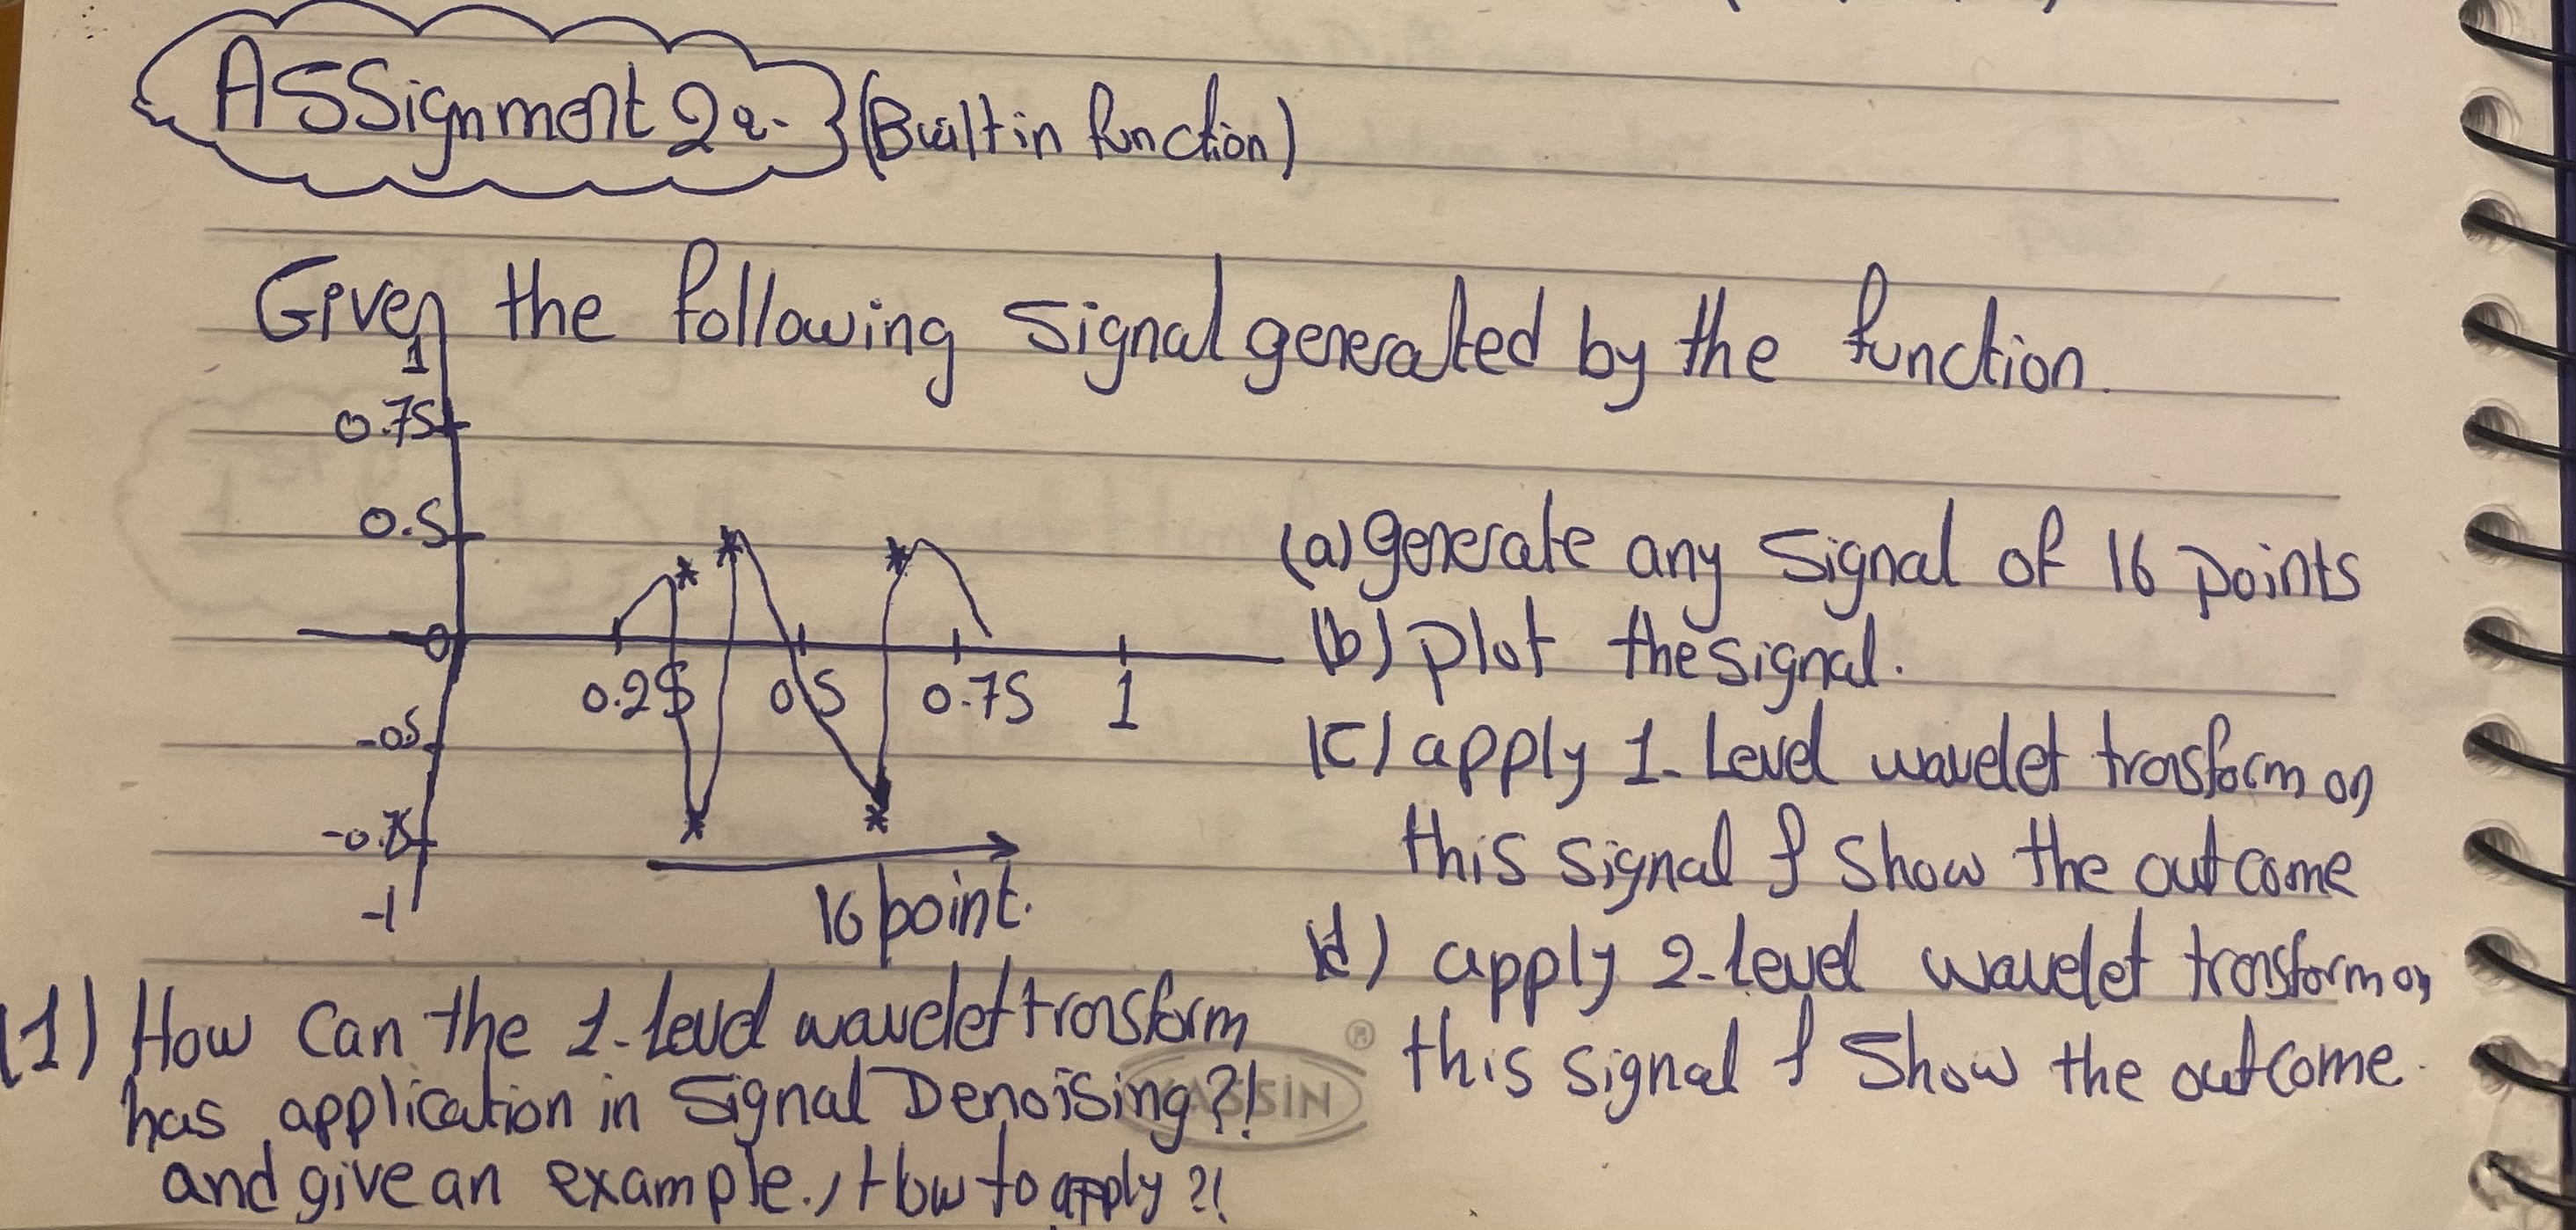 ASSignment 2a. (Built in function)
Given the following signal generated by the function.
1
0.75
0.5
0
-0.5
-0.75
-1
0.25 0.5 0.75 1
16 point.
(a) generate any signal of 16 points
(b) plot the signal.
(c) apply 1-Level wavelet transform on
this signal & show the outcome
(d) apply 2-level wavelet transform on
this signal & Show the outcome.
(1) How Can the 1-level wavelet transform
has application in signal Denoising?!
and give an example., How to apply?!
YASSIN ®